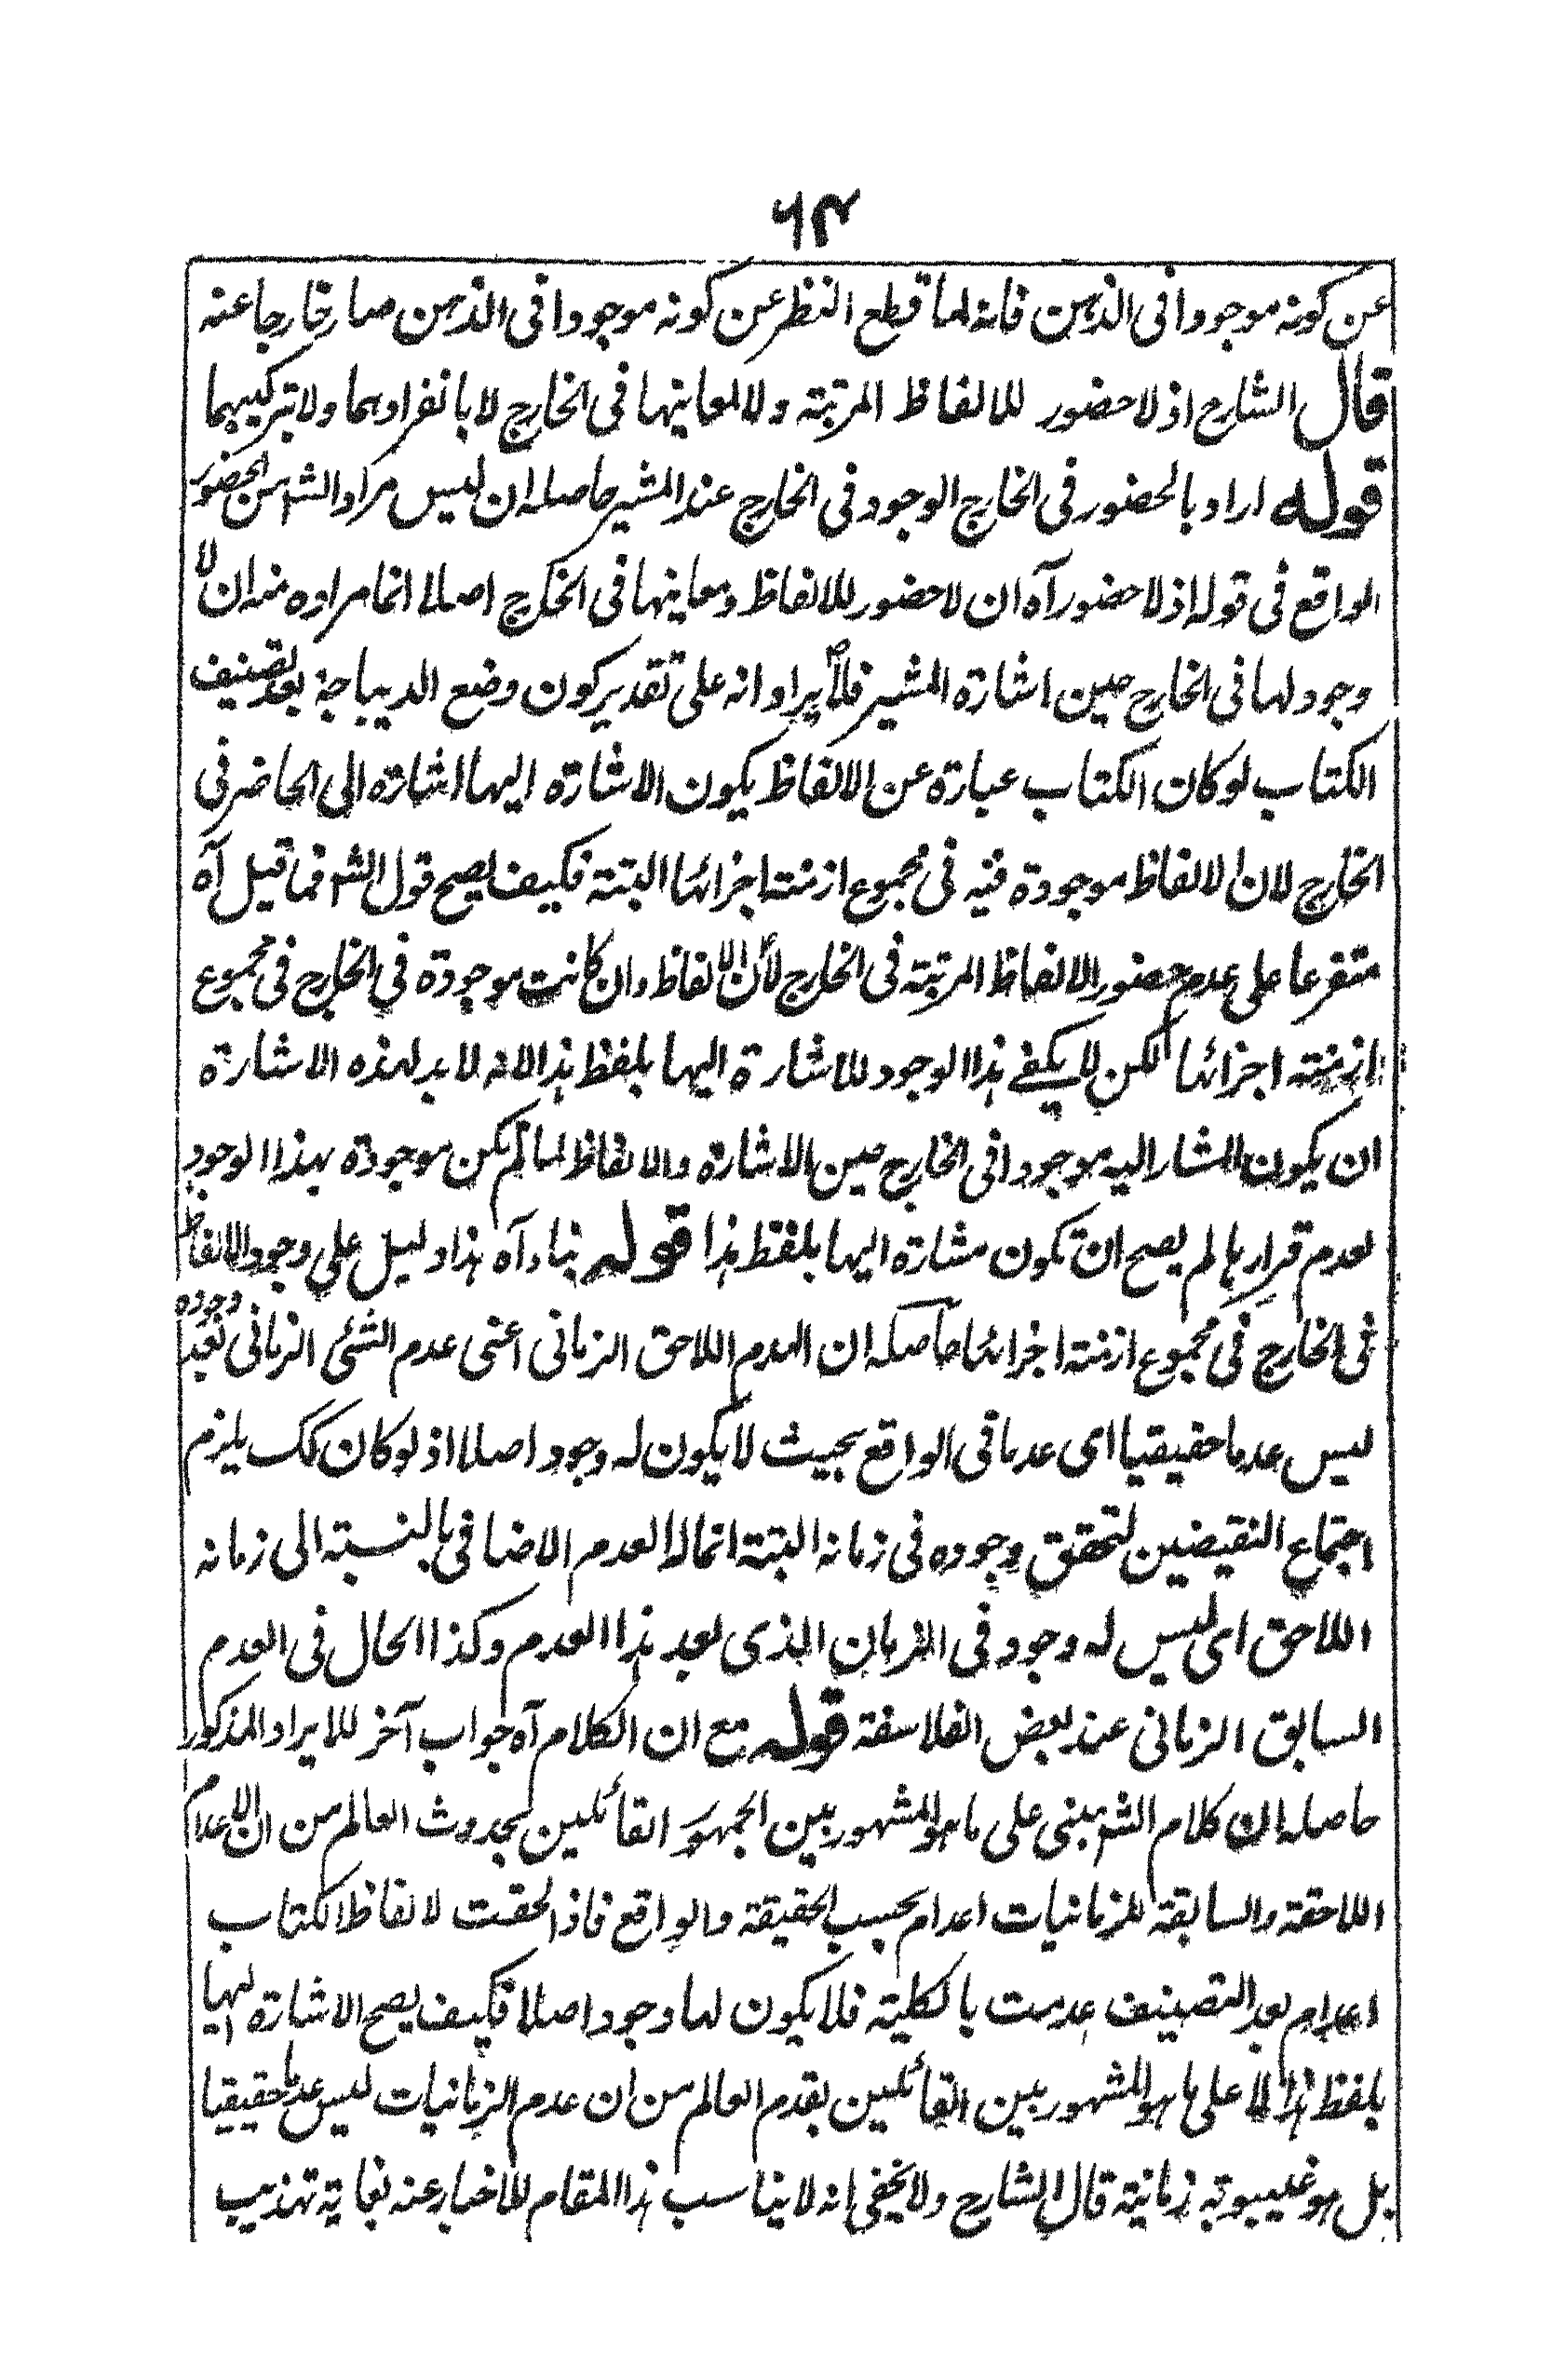 ٦٤
عن كونه موجودا فى الذهن فانه لما قطع النظر عن كونه موجودا فى الذهن صار خارجا عنه
قال الشارح اذ لا حضور للالفاظ المرتبة ولا لمعانيها فى الخارج لا بانفرادهما ولا بتركيبهما
قوله اراد بالحضور فى الخارج الوجود فى الخارج عند المشير حاصله ان ليس مراد الش من الحضور
الواقع فى قوله اذ لا حضور آه ان لا حضور للالفاظ ومعانيها فى الخارج اصلا انما مراده منه ان لا
وجود لها فى الخارج حين اشارة المشير فلا يراد انه على تقدير كون وضع الديباجة بعد تصنيف
الكتاب لو كان الكتاب عبارة عن الالفاظ يكون الاشارة اليها اشارة الى الحاضر فى
الخارج لان الالفاظ موجودة فيه فى مجموع ازمنة اجزائها البتة فكيف يصح قول الش فما قيل آه
متفرعا على عدم حضور الالفاظ المرتبة فى الخارج لان الالفاظ وان كانت موجودة فى الخارج فى مجموع
ازمنته اجزائها لكن لا يكفى هذا الوجود للاشارة اليها بلفظ هذا لانه لا بد لهذه الاشارة
ان يكون المشار اليه موجودا فى الخارج حين الاشارة والالفاظ لما لم تكن موجودة بهذا الوجود
لعدم قرارها لم يصح ان تكون مشارة اليها بلفظ هذا قوله بناء آه هذا دليل على وجود الالفاظ
فى الخارج فى مجموع ازمنة اجزائها حاصله ان العدم اللاحق الزمانى اعنى عدم الشئ الزمانى بعد وجوده
ليس عدما حقيقيا اى عدما فى الواقع بحيث لا يكون له وجود اصلا اذ لو كان كك يلزم
اجتماع النقيضين لتحقق وجوده فى زمانه البتة انما له العدم الاضافى بالنسبة الى زمانه
اللاحق اى ليس له وجود فى الزمان الذى بعد هذا العدم وكذا الحال فى العدم
السابق الزمانى عند بعض الفلاسفة قوله مع ان الكلام آه جواب آخر للايراد المذكور
حاصله ان كلام الش مبنى على ما هو المشهور بين الجمهور القائلين بحدوث العالم من ان الاعدام
اللاحقة والسابقة للزمانيات اعدام بحسب الحقيقة والواقع فاذا لحقت لالفاظ الكتاب
اعدام بعد التصنيف عدمت بالكلية فلا يكون لها وجود اصلا فكيف يصح الاشارة اليها
بلفظ هذا لا على ما هو المشهور بين القائلين بقدم العالم من ان عدم الزمانيات ليس عدما حقيقيا
بل هو غيبوبة زمانية قال الشارح ولا يخفى انه لا يناسب هذا المقام للاخبار عنه بغاية تهذيب